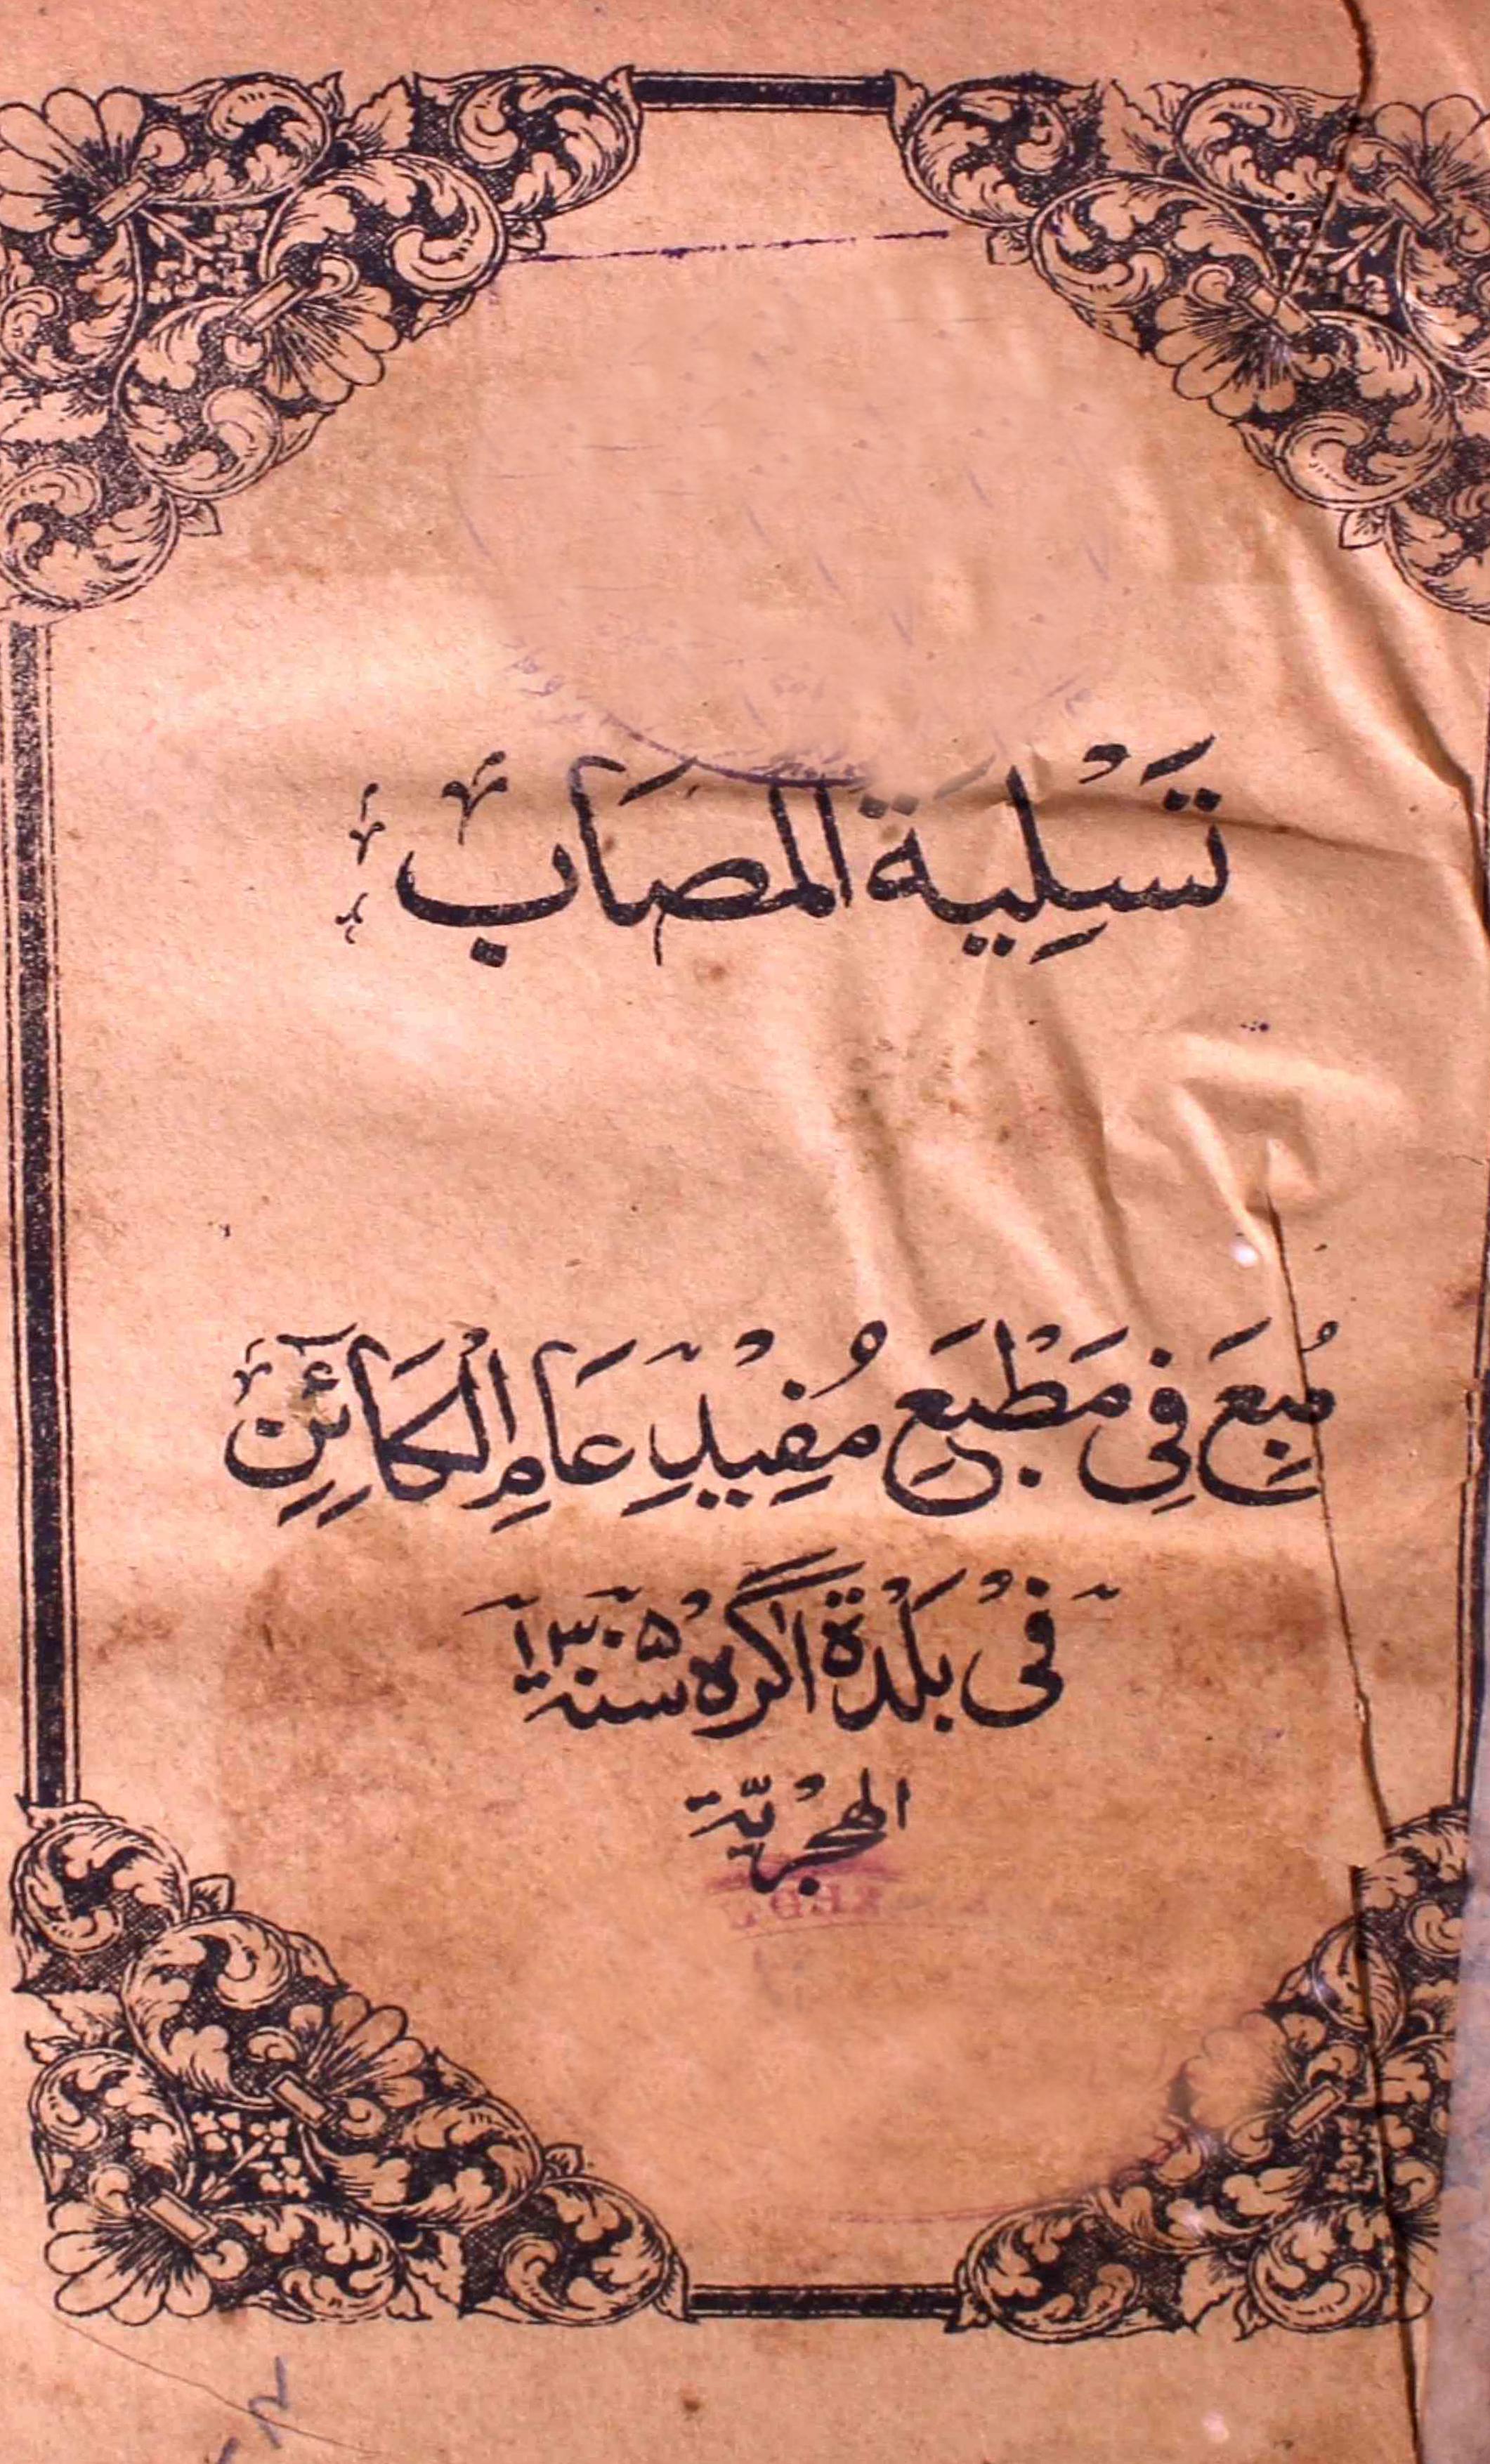 تَسْلِيَة المصَاب
طُبِعَ فِي مَطْبَعِ مُفِيْدِ عَامِ الْكَائِنِ
فىْ بَلْدَةْ اگرہ سنہ ۱۳۰۵
الهجْريّة